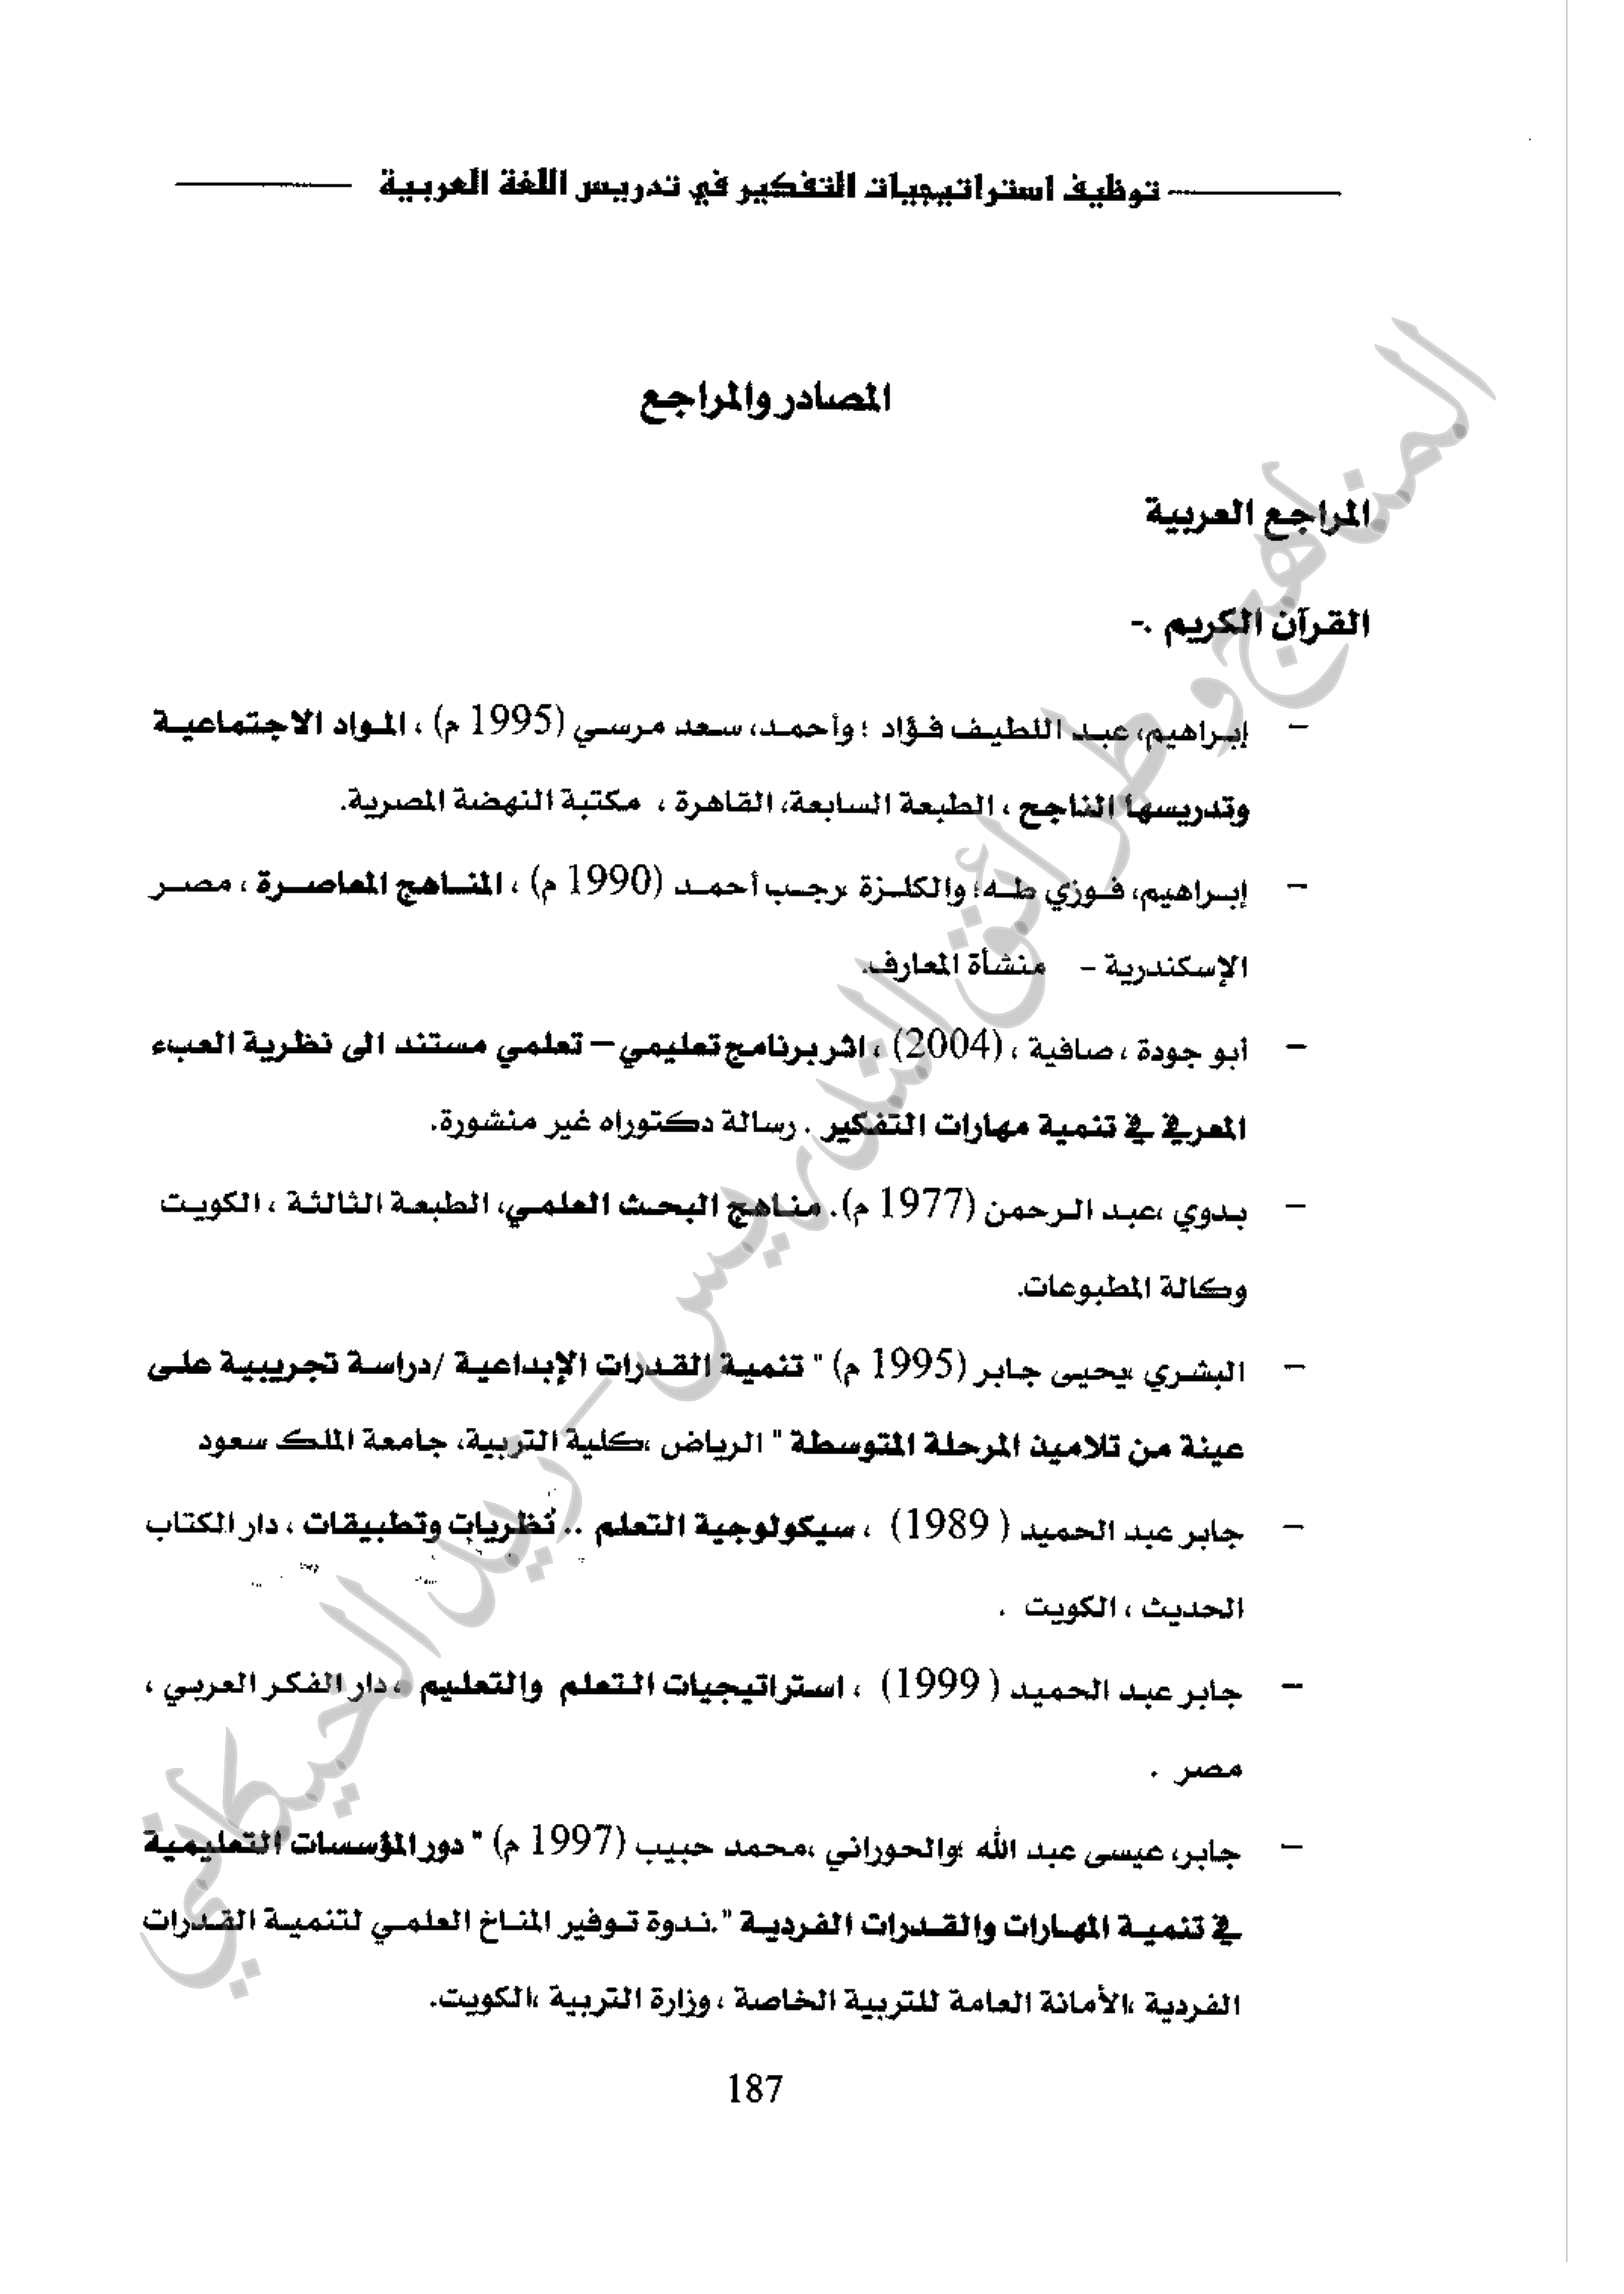 توظيف استراتيجيات التفكير في تدريس اللغة العربية
المصادر والمراجع
المراجع العربية
القرآن الكريم .-
- إبراهيم، عبد اللطيف فؤاد ؛ وأحمد، سعد مرسي (1995 م) ، المواد الاجتماعية
وتدريسها الناجح ، الطبعة السابعة، القاهرة ، مكتبة النهضة المصرية.
- إبراهيم، فوزي طه؛ والكلزة ،رجب أحمد (1990 م) ، المناهج المعاصرة ، مصر
الإسكندرية - منشأة المعارف.
- أبو جودة ، صافية ، (2004) ، اثر برنامج تعليمي – تعلمي مستند الى نظرية العبء
المعرفي في تنمية مهارات التفكير . رسالة دكتوراه غير منشورة.
- بدوي ،عبد الرحمن (1977 م). مناهج البحث العلمي، الطبعة الثالثة ، الكويت
وكالة المطبوعات.
- البشري ،يحيى جابر (1995 م) " تنمية القدرات الإبداعية /دراسة تجريبية على
عينة من تلاميذ المرحلة المتوسطة " الرياض ،كلية التربية، جامعة الملك سعود
- جابر عبد الحميد ( 1989) ، سيكولوجية التعلم .. نظريات وتطبيقات ، دار الكتاب
الحديث ، الكويت .
- جابر عبد الحميد ( 1999) ، استراتيجيات التعلم والتعليم ، دار الفكر العربي ،
مصر .
- جابر، عيسى عبد الله ؛والحوراني ،محمد حبيب (1997 م) " دور المؤسسات التعليمية
في تنمية المهارات والقدرات الفردية ".ندوة توفير المناخ العلمي لتنمية القدرات
الفردية ،الأمانة العامة للتربية الخاصة ، وزارة التربية ،الكويت.
187
المناهج وطرائق التدريس - زيد الخيكاني